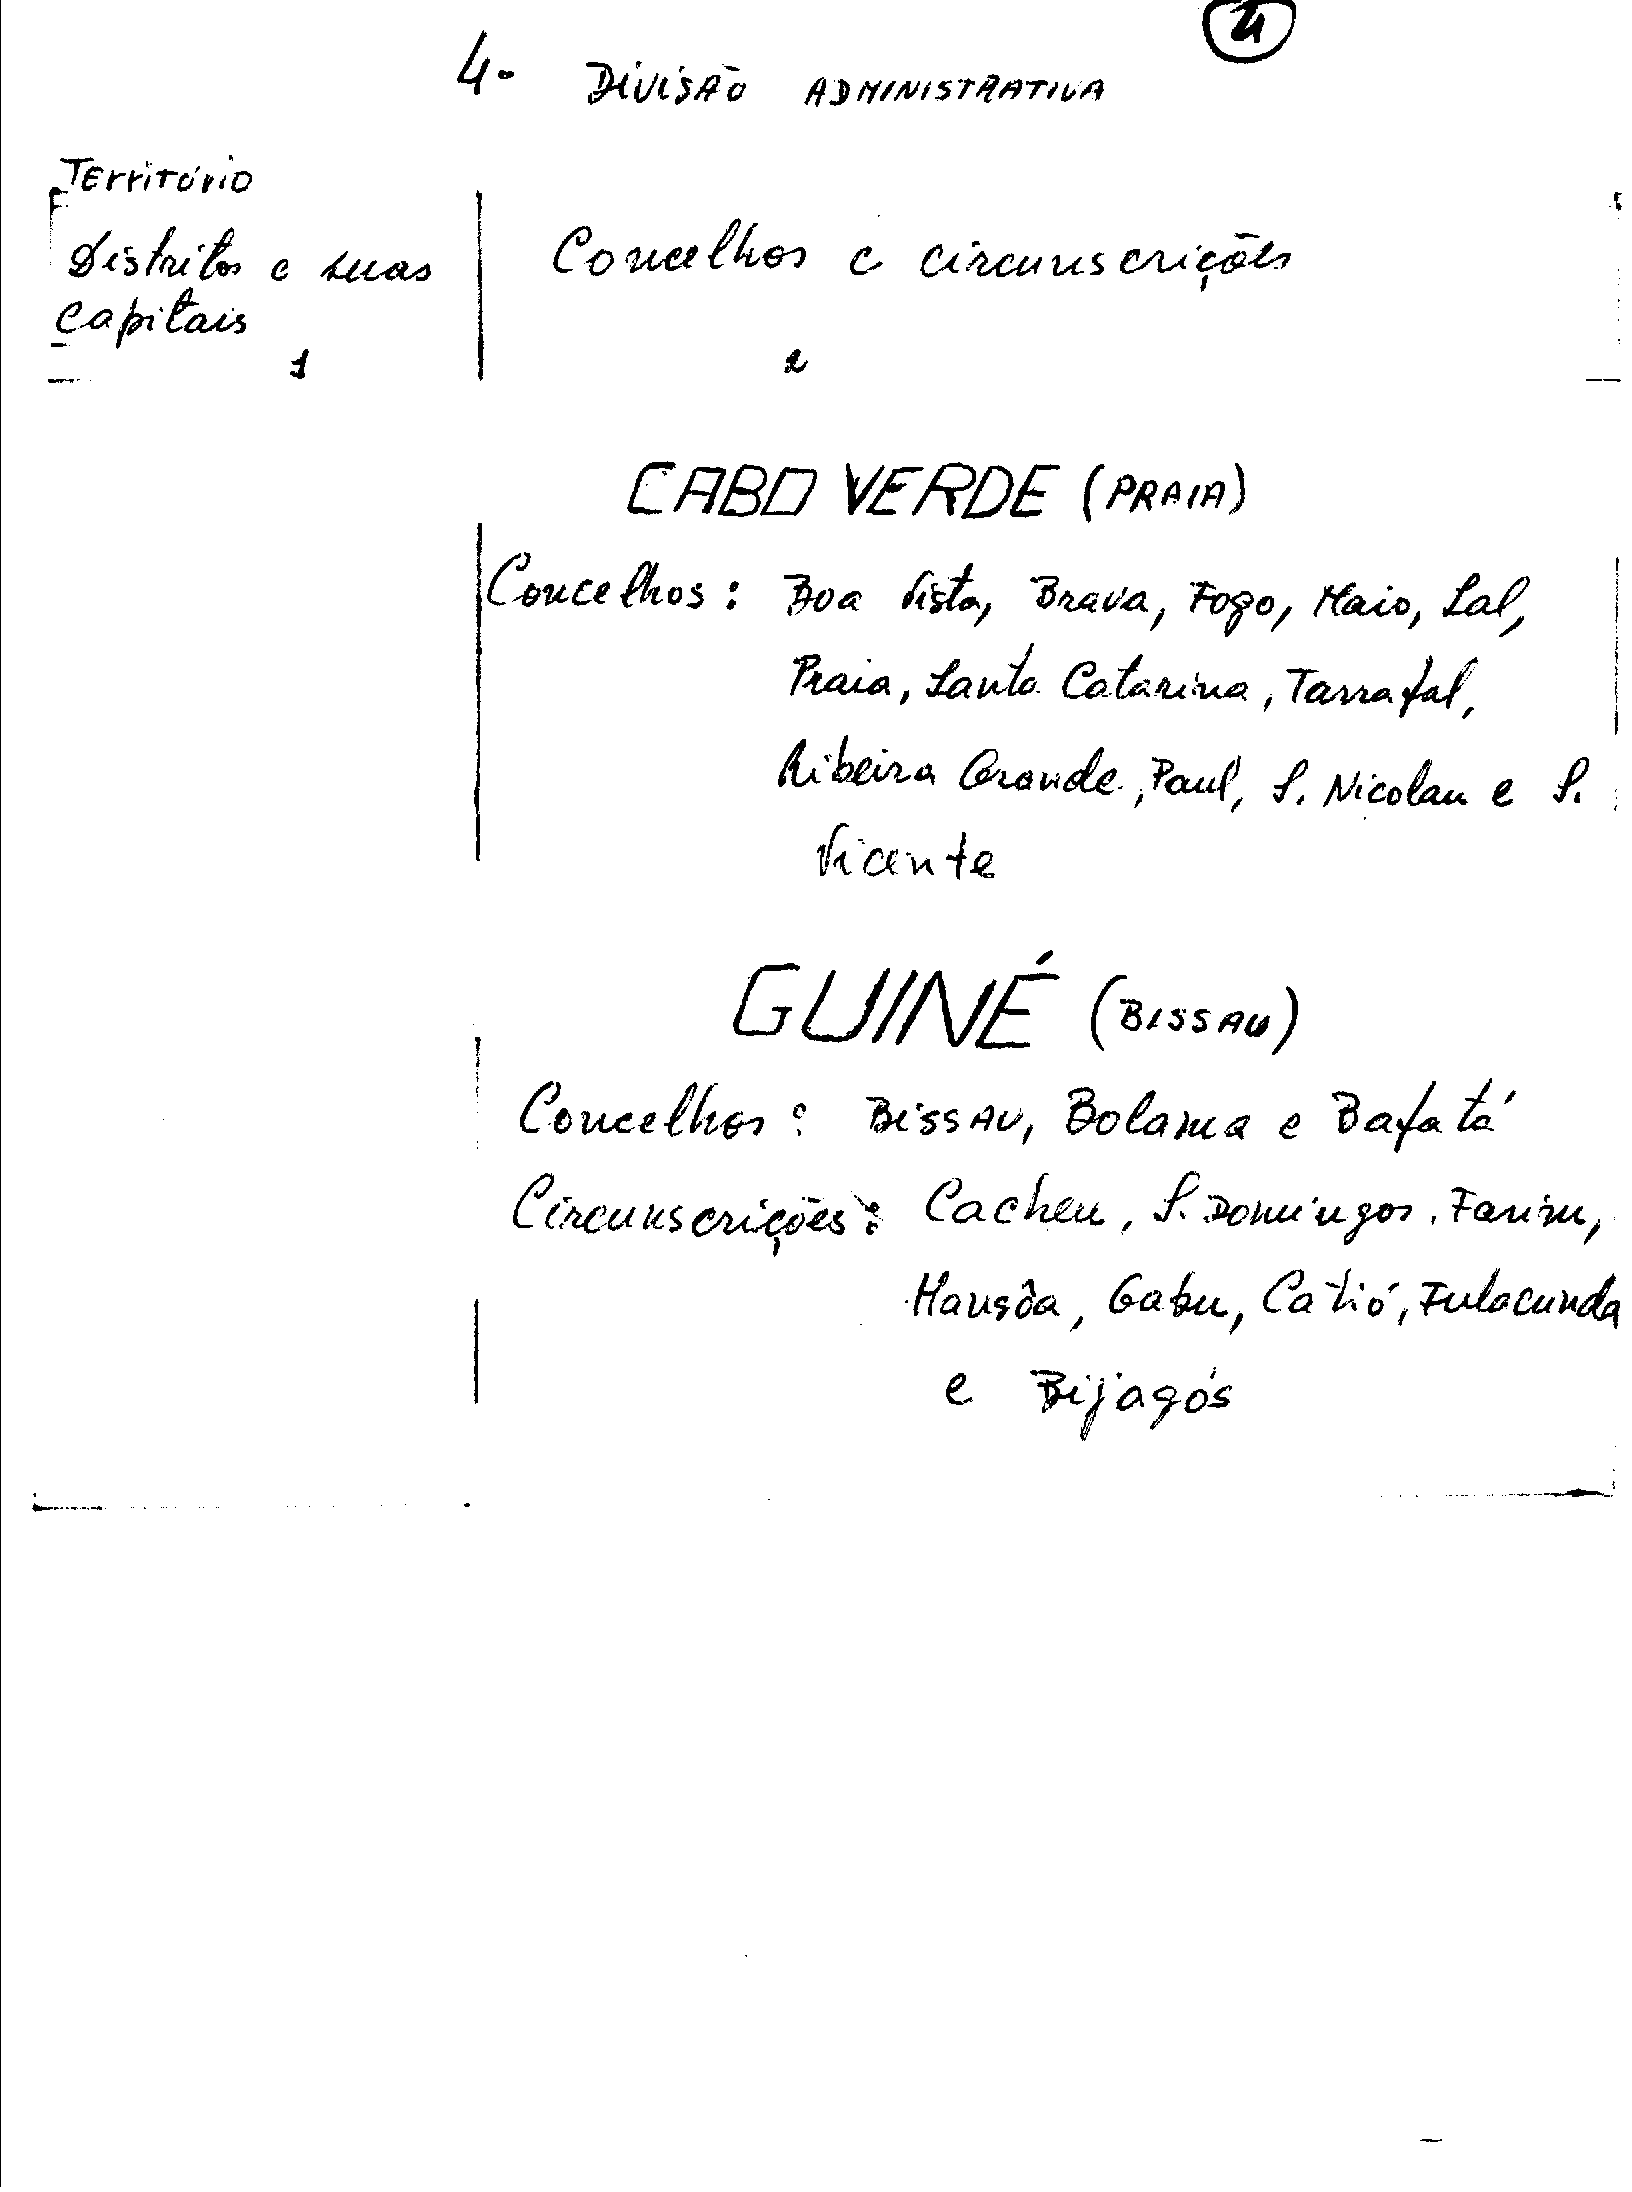 4
4- DIVISÃO ADMINISTRATIVA
Território
Distritos e suas
capitais
1
Concelhos e circunscrições
2
CABO VERDE (PRAIA)
Concelhos: Boa Vista, Brava, Fogo, Maio, Sal,
Praia, Santa Catarina, Tarrafal,
Ribeira Grande, Paul, S. Nicolau e S.
Vicente
GUINÉ (BISSAU)
Concelhos: BISSAU, Bolama e Bafatá
Circunscrições: Cacheu, S. Domingos, Farim,
Mansôa, Gabu, Catió, Fulacunda
e Bijagós